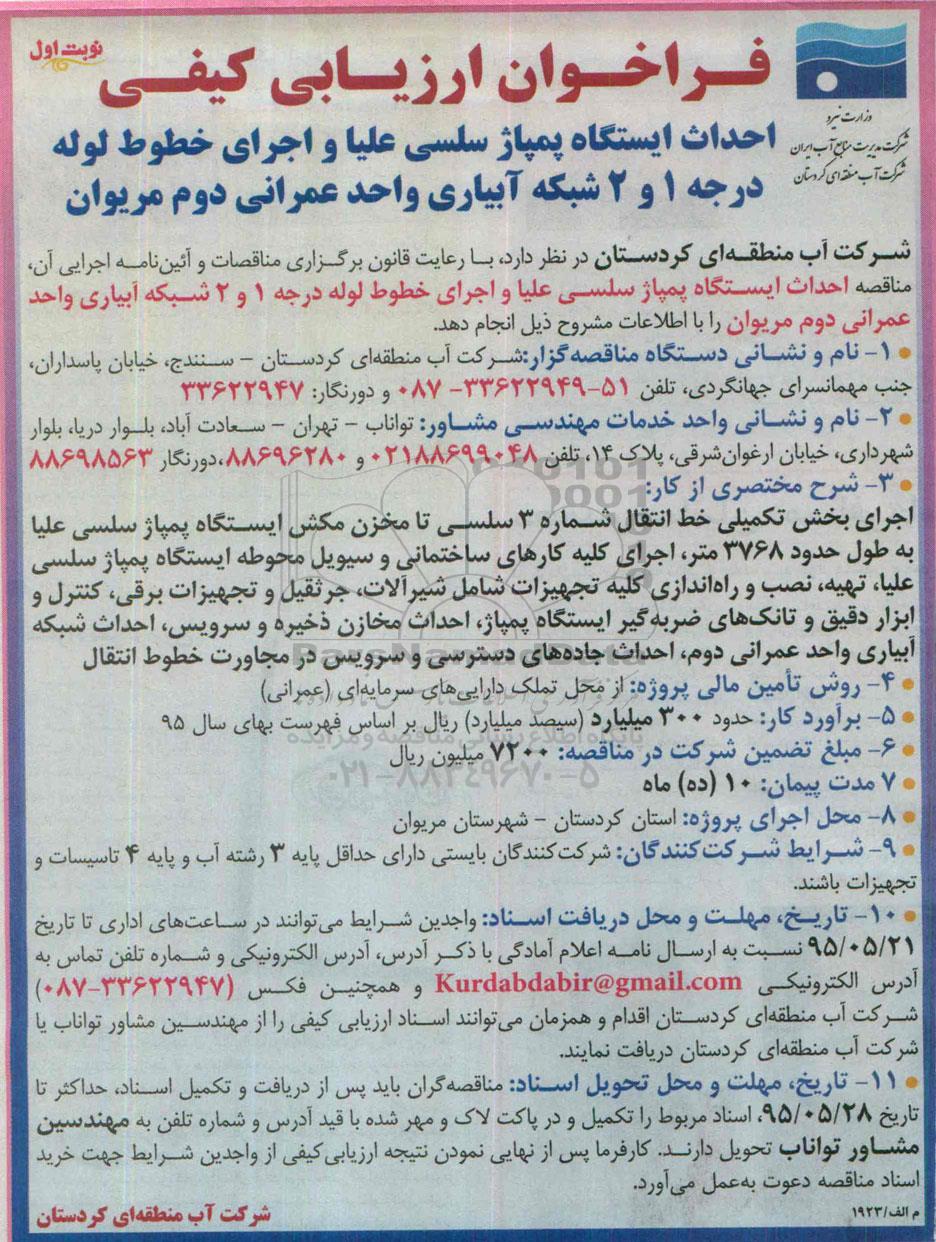 نوبت اول
فراخوان ارزیابی کیفی
وزارت نیرو
شرکت مدیریت منابع آب ایران
شرکت آب منطقه‌ای کردستان
احداث ایستگاه پمپاژ سلسی علیا و اجرای خطوط لوله
درجه ۱ و ۲ شبکه آبیاری واحد عمرانی دوم مریوان
شرکت آب منطقه‌ای کردستان در نظر دارد، با رعایت قانون برگزاری مناقصات و آئین‌نامه اجرایی آن،
مناقصه احداث ایستگاه پمپاژ سلسی علیا و اجرای خطوط لوله درجه ۱ و ۲ شبکه آبیاری واحد
عمرانی دوم مریوان را با اطلاعات مشروح ذیل انجام دهد.
● ۱- نام و نشانی دستگاه مناقصه‌گزار: شرکت آب منطقه‌ای کردستان - سنندج، خیابان پاسداران،
جنب مهمانسرای جهانگردی، تلفن ۵۱-۳۳۶۲۲۹۴۹- ۰۸۷ و دورنگار: ۳۳۶۲۲۹۴۷
● ۲- نام و نشانی واحد خدمات مهندسی مشاور: تواناب - تهران - سعادت آباد، بلوار دریا، بلوار
شهرداری، خیابان ارغوان‌شرقی، پلاک ۱۴، تلفن ۰۲۱۸۸۶۹۹۰۴۸ و ۸۸۶۹۶۲۸۰،دورنگار ۸۸۶۹۸۵۶۳
● ۳- شرح مختصری از کار:
اجرای بخش تکمیلی خط انتقال شماره ۳ سلسی تا مخزن مکش ایستگاه پمپاژ سلسی علیا
به طول حدود ۳۷۶۸ متر، اجرای کلیه کارهای ساختمانی و سیویل محوطه ایستگاه پمپاژ سلسی
علیا، تهیه، نصب و راه‌اندازی کلیه تجهیزات شامل شیرآلات، جرثقیل و تجهیزات برقی، کنترل و
ابزار دقیق و تانک‌های ضربه‌گیر ایستگاه پمپاژ، احداث مخازن ذخیره و سرویس، احداث شبکه
آبیاری واحد عمرانی دوم، احداث جاده‌های دسترسی و سرویس در مجاورت خطوط انتقال
● ۴- روش تأمین مالی پروژه: از محل تملک دارایی‌های سرمایه‌ای (عمرانی)
● ۵- برآورد کار: حدود ۳۰۰ میلیارد (سیصد میلیارد) ریال بر اساس فهرست بهای سال ۹۵
● ۶- مبلغ تضمین شرکت در مناقصه: ۷۲۰۰ میلیون ریال
● ۷ مدت پیمان: ۱۰ (ده) ماه
● ۸- محل اجرای پروژه: استان کردستان - شهرستان مریوان
● ۹- شرایط شرکت‌کنندگان: شرکت‌کنندگان بایستی دارای حداقل پایه ۳ رشته آب و پایه ۴ تاسیسات و
تجهیزات باشند.
● ۱۰- تاریخ، مهلت و محل دریافت اسناد: واجدین شرایط می‌توانند در ساعت‌های اداری تا تاریخ
۹۵/۰۵/۲۱ نسبت به ارسال نامه اعلام آمادگی با ذکر آدرس، آدرس الکترونیکی و شماره تلفن تماس به
آدرس الکترونیکی Kurdabdabir@gmail.com و همچنین فکس (۳۳۶۲۲۹۴۷-۰۸۷)
شرکت آب منطقه‌ای کردستان اقدام و همزمان می‌توانند اسناد ارزیابی کیفی را از مهندسین مشاور تواناب یا
شرکت آب منطقه‌ای کردستان دریافت نمایند.
● ۱۱- تاریخ، مهلت و محل تحویل اسناد: مناقصه‌گران باید پس از دریافت و تکمیل اسناد، حداکثر تا
تاریخ ۹۵/۰۵/۲۸، اسناد مربوط را تکمیل و در پاکت لاک و مهر شده با قید آدرس و شماره تلفن به مهندسین
مشاور تواناب تحویل دارند. کارفرما پس از نهایی نمودن نتیجه ارزیابی‌کیفی از واجدین شرایط جهت خرید
اسناد مناقصه دعوت به‌عمل می‌آورد.
م الف/۱۹۲۳
شرکت آب منطقه‌ای کردستان
ParsNamadData
پایگاه اطلاع رسانی مناقصه و مزایده
۰۲۱-۸۸۳۴۹۶۷۰-۵